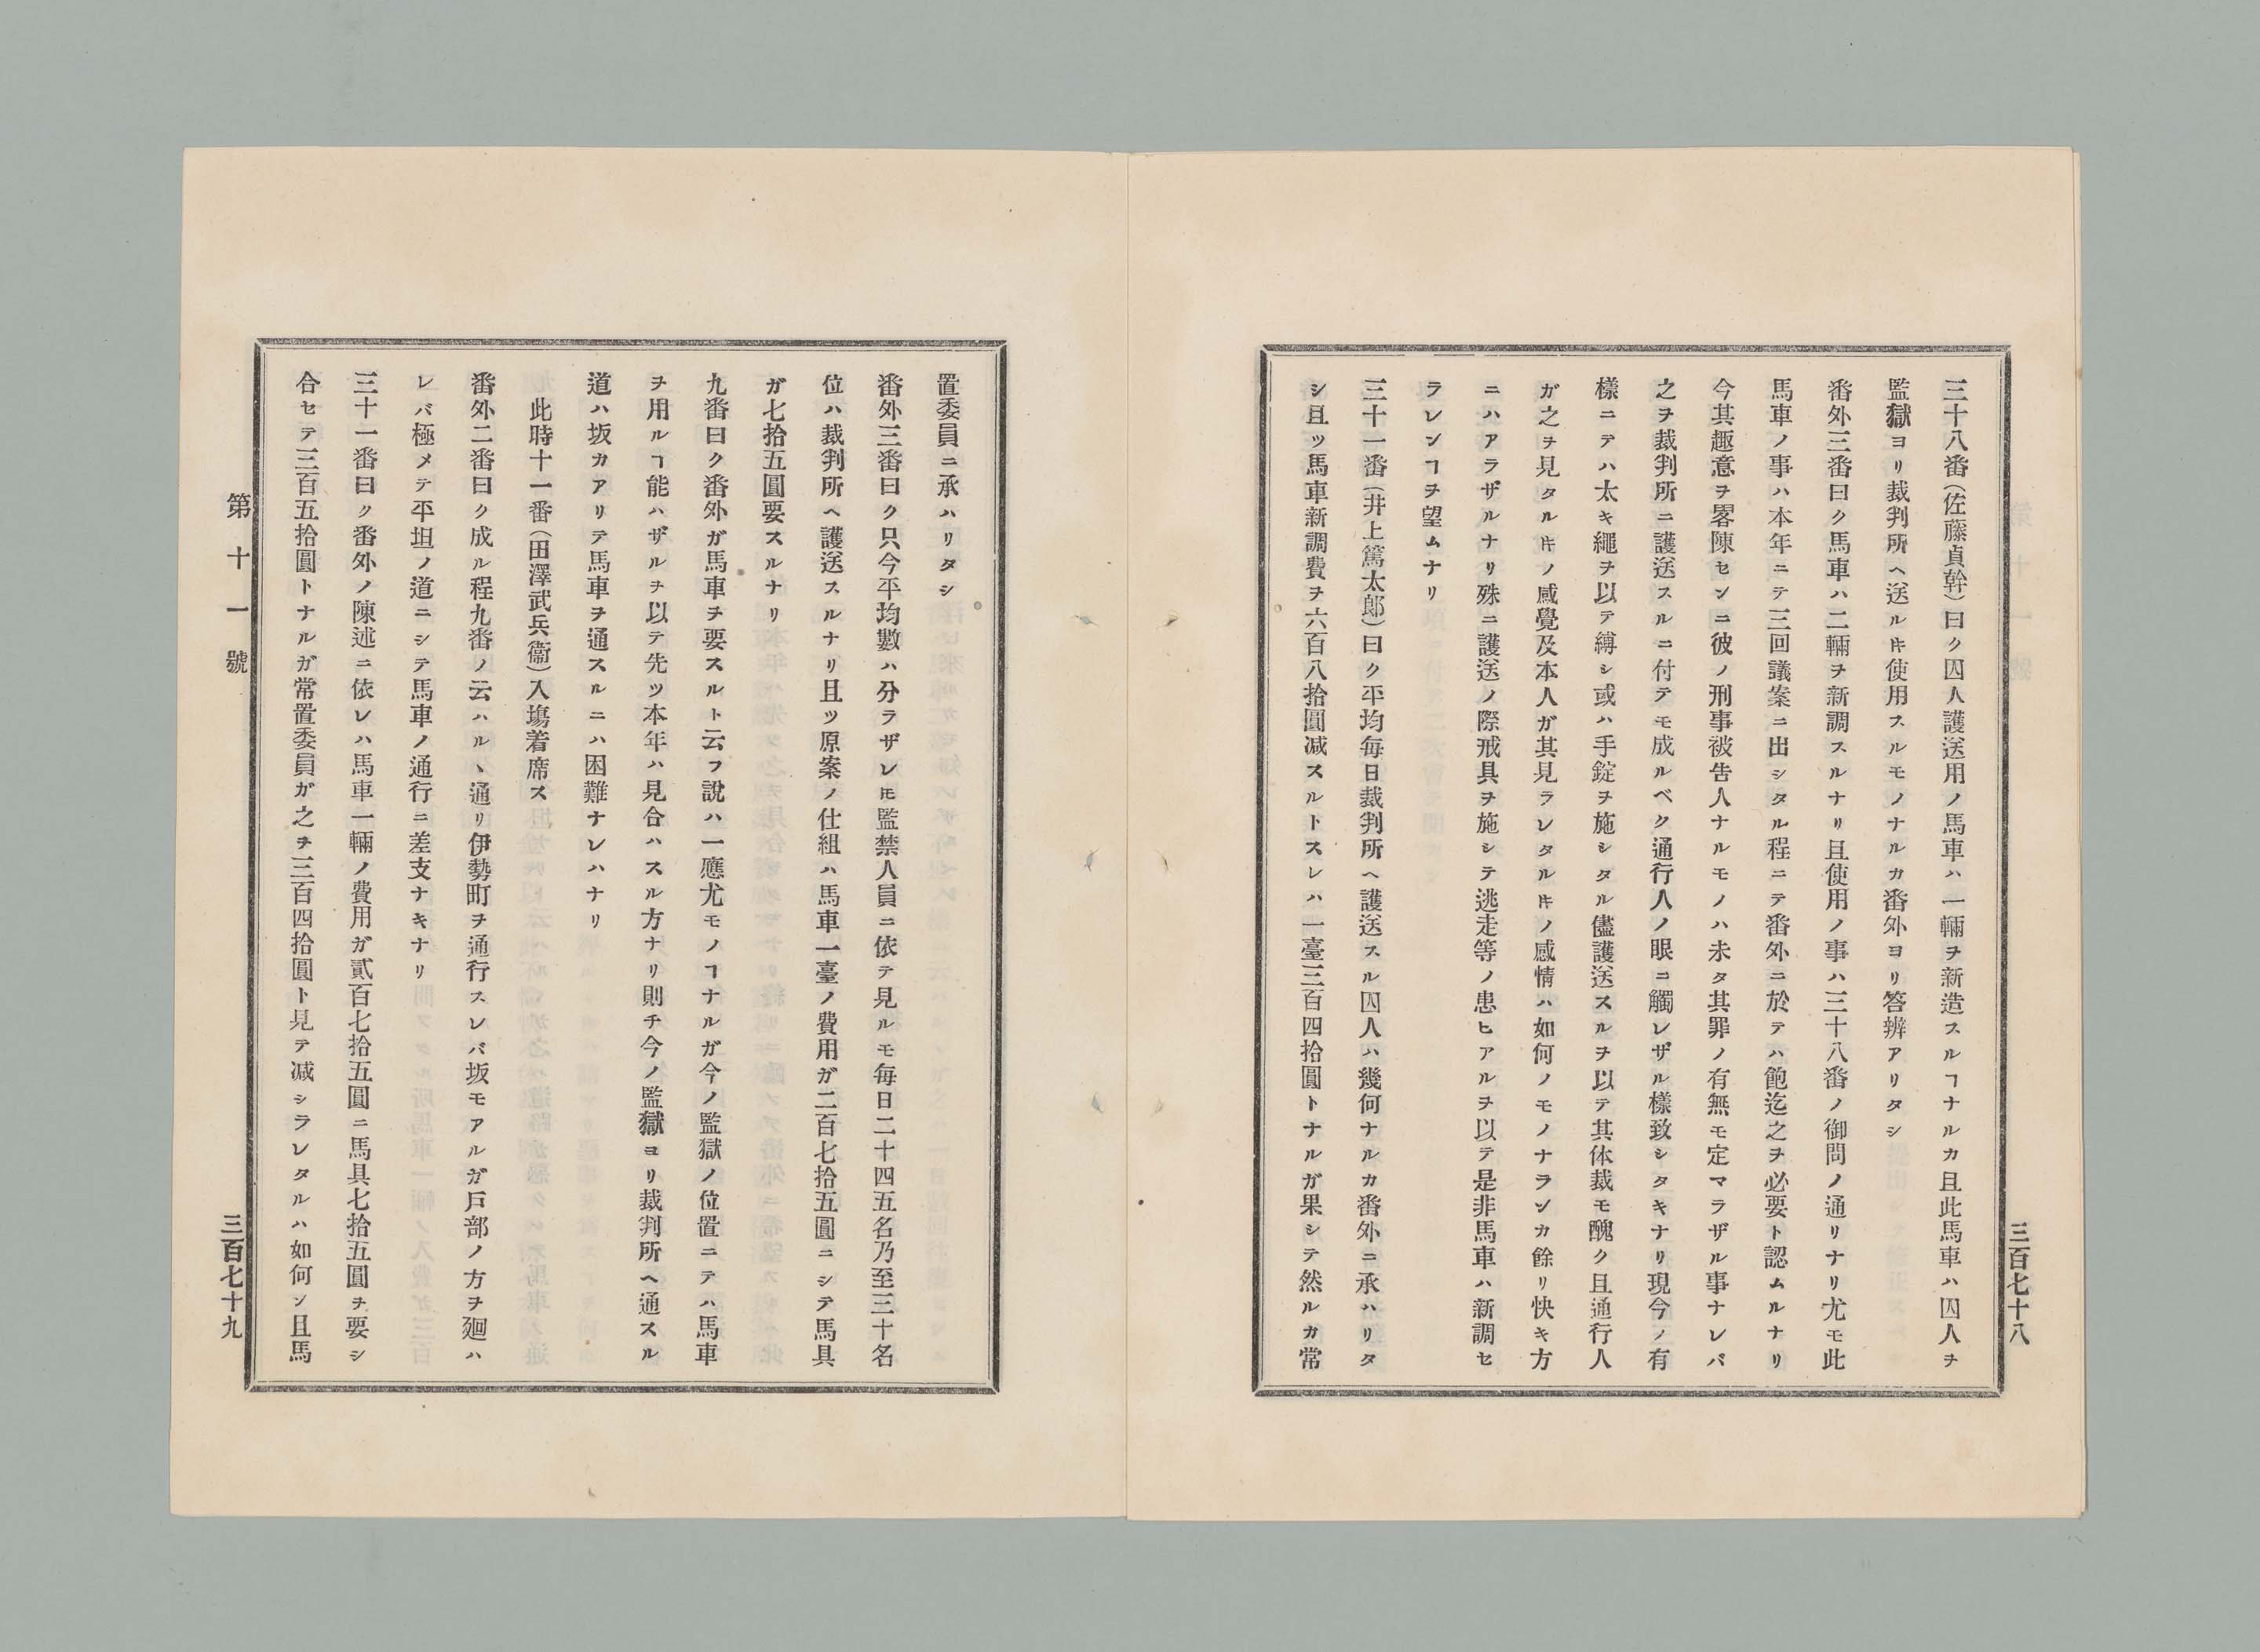 三百七十八
三十八番（佐藤貞幹）曰ク囚人護送用ノ馬車ハ一輛ヲ新造スルヿナルカ且此馬車ハ囚人ヲ
監獄ヨリ裁判所ヘ送ルꪪ使用スルモノナルカ番外ヨリ答辨アリタシ
番外三番曰ク馬車ハ二輛ヲ新調スルナリ且使用ノ事ハ三十八番ノ御問ノ通リナリ尤モ此
馬車ノ事ハ本年ニテ三回議案ニ出シタル程ニテ番外ニ於テハ飽迄之ヲ必要ト認ムルナリ
今其趣意ヲ畧陳センニ彼ノ刑事被告人ナルモノハ未タ其罪ノ有無モ定マラザル事ナレバ
之ヲ裁判所ニ護送スルニ付テモ成ルベク通行人ノ眼ニ觸レザル樣致シタキナリ現今ノ有
樣ニテハ太キ繩ヲ以テ縛シ或ハ手錠ヲ施シタル儘護送スルヲ以テ其体裁モ醜ク且通行人
ガ之ヲ見タルꪪノ感覺及本人ガ其見ラレタルꪪノ感情ハ如何ノモノナランカ餘リ快キ方
ニハアラザルナリ殊ニ護送ノ際戒具ヲ施シテ逃走等ノ患ヒアルヲ以テ是非馬車ハ新調セ
ラレンヿヲ望ムナリ
三十一番（井上篤太郎）曰ク平均毎日裁判所ヘ護送スル囚人ハ幾何ナルカ番外ニ承ハリタ
シ且ツ馬車新調費ヲ六百八拾圓减スルトスレハ一臺三百四拾圓トナルガ果シテ然ルカ常
置委員ニ承ハリタシ
番外三番曰ク只今平均數ハ分ラザレ𪜈監禁人員ニ依テ見ルモ毎日二十四五名乃至三十名
位ハ裁判所ヘ護送スルナリ且ツ原案ノ仕組ハ馬車一臺ノ費用ガ二百七拾五圓ニシテ馬具
ガ七拾五圓要スルナリ
九番曰ク番外ガ馬車ヲ要スルト云フ說ハ一應尤モノヿナルガ今ノ監獄ノ位置ニテハ馬車
ヲ用ルヿ能ハザルヲ以テ先ツ本年ハ見合ハスル方ナリ則チ今ノ監獄ヨリ裁判所ヘ通スル
道ハ坂カアリテ馬車ヲ通スルニハ困難ナレハナリ
此時十一番（田澤武兵衞）入塲着席ス
番外二番曰ク成ル程九番ノ云ハルヽ通リ伊勢町ヲ通行スレバ坂モアルガ戸部ノ方ヲ廻ハ
レバ極メテ平坦ノ道ニシテ馬車ノ通行ニ差支ナキナリ
三十一番曰ク番外ノ陳述ニ依レハ馬車一輛ノ費用ガ貳百七拾五圓ニ馬具七拾五圓ヲ要シ
合セテ三百五拾圓トナルガ常置委員ガ之ヲ三百四拾圓ト見テ减シラレタルハ如何ン且馬
第十一號
三百七十九